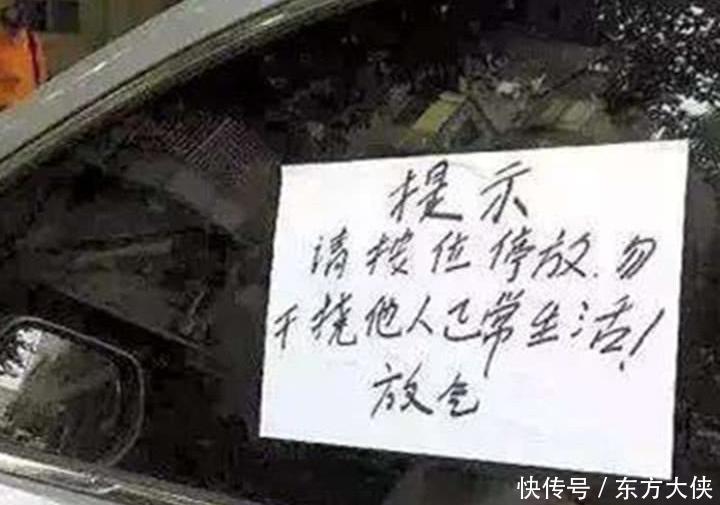 提示
请按位停放.勿
干挠他人正常生活!
放气
快传号/东方大侠